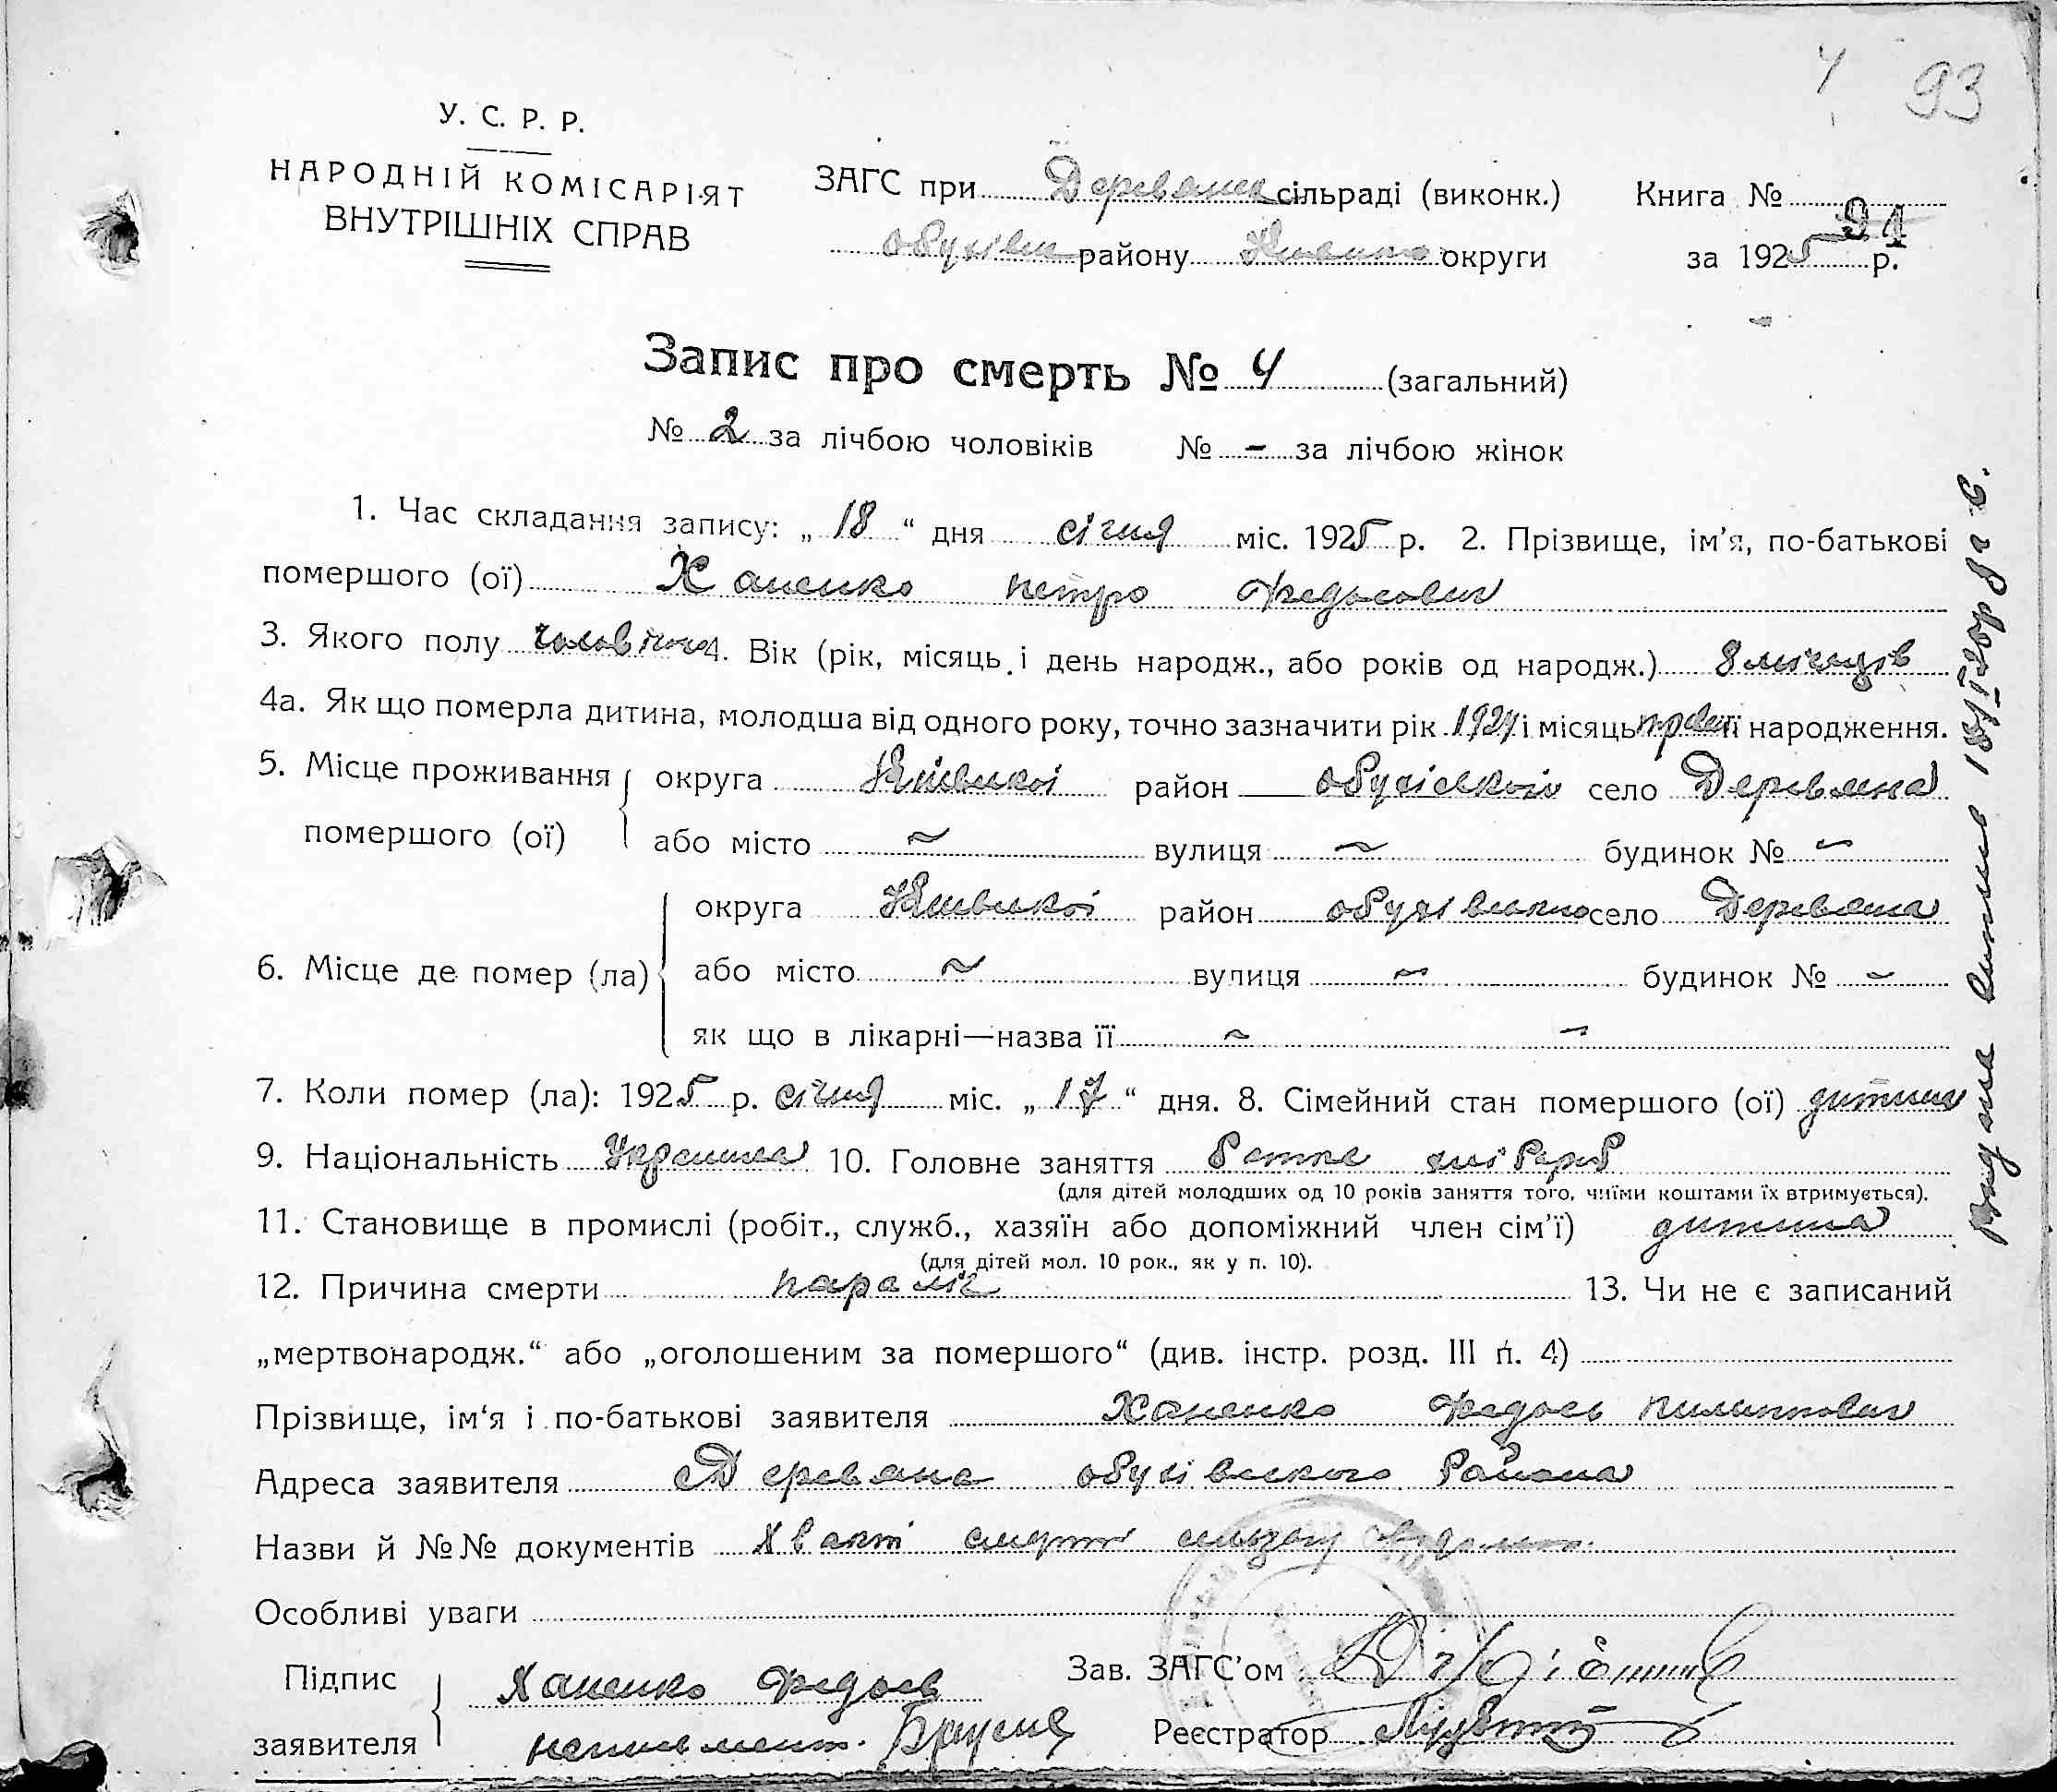 4 93
У. С. Р. Р.
НАРОДНІЙ КОМІСАРІЯТ
ВНУТРІШНІХ СПРАВ
ЗАГС при Деревяна сільраді (виконк.) Книга №
Обухівськ району Київсько округи за 1925 р.
94
Запис про смерть № 4 (загальний)
№ 2 за лічбою чоловіків № - за лічбою жінок
1. Час складання запису: „ 18 “ дня січня міс. 1925 р. 2. Прізвище, ім’я, по-батькові
помершого (ої) Ханенко Петро Федосович
3. Якого полу чоловічого 4. Вік (рік, місяць і день народж., або років од народж.) 8 місяців
4а. Як що померла дитина, молодша від одного року, точно зазначити рік 1924 і місяць її народження.
5. Місце проживання помершого (ої) округа Київської район Обухівського село Деревяна
або місто ~ вулиця ~ будинок № ~
6. Місце де помер (ла) округа Київської район Обухівського село Деревяна
або місто ~ вулиця ~ будинок № ~
як що в лікарні—назва її ~ ~
7. Коли помер (ла): 1925 р. січня міс. „ 17 “ дня. 8. Сімейний стан помершого (ої) дитина
9. Національність Украинец 10. Головне заняття батько хлібороб
(для дітей молодших од 10 років заняття того, чиїми коштами їх втримується).
11. Становище в промислі (робіт., служб., хазяїн або допоміжний член сім’ї) дитина
(для дітей мол. 10 рок., як у п. 10).
12. Причина смерти параліч 13. Чи не є записаний
„мертвонародж.“ або „оголошеним за помершого“ (див. інстр. розд. III п. 4)
Прізвище, ім‘я і по-батькові заявителя Ханенко Федось Пилипович
Адреса заявителя Деревяна Обухівського Района
Назви й №№ документів смерті
Особливі уваги
Підпис заявителя Ханенко Федось
неписьмен.
Зав. ЗАГС’ом
Реєстратор